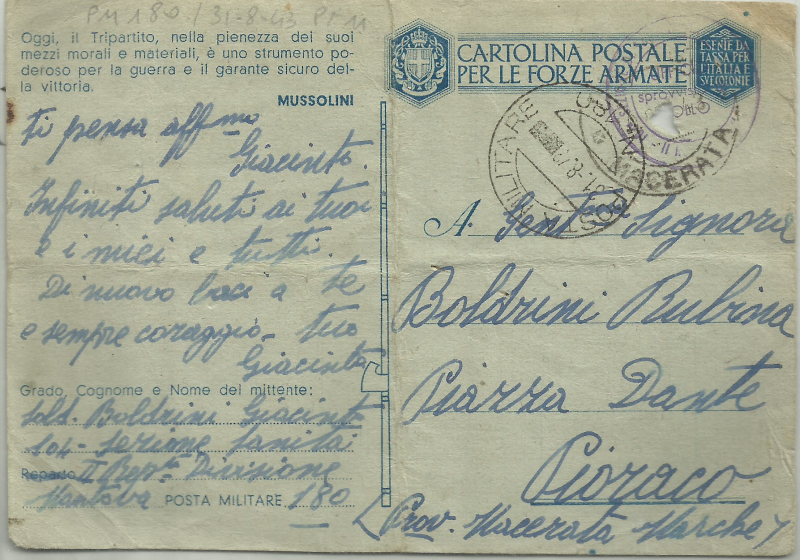 PM 180 / 31-8-43 PP 11
Oggi, il Tripartito, nella pienezza dei suoi
mezzi morali e materiali, è uno strumento po-
deroso per la guerra e il garante sicuro del-
la vittoria.
MUSSOLINI
ti pensa aff.mo
Giacinto.
Infiniti saluti ai tuoi
e i miei e tutti.
Di nuovo baci a te
e sempre coraggio tuo
Giacinto
Grado, Cognome e Nome del mittente:
Sold. Boldrini Giacinto
104- Sezione Sanità
Reparto II Rep.to Divisione
Mantova POSTA MILITARE 180
CARTOLINA POSTALE
PER LE FORZE ARMATE
ESENTE DA
TASSA PER
L'ITALIA E
SUE COLONIE
POSTA MILITARE N. 180
MACERATA
A Gent. Signora
Boldrini Rubina
Piazza Dante
Pioraco
(Prov. Macerata Marche)